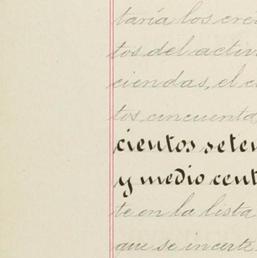 taría los cre
tos del activ
ciendas, el c
tos cincuenta
cientos seten
y medio cent
te en la lista
que se inserte